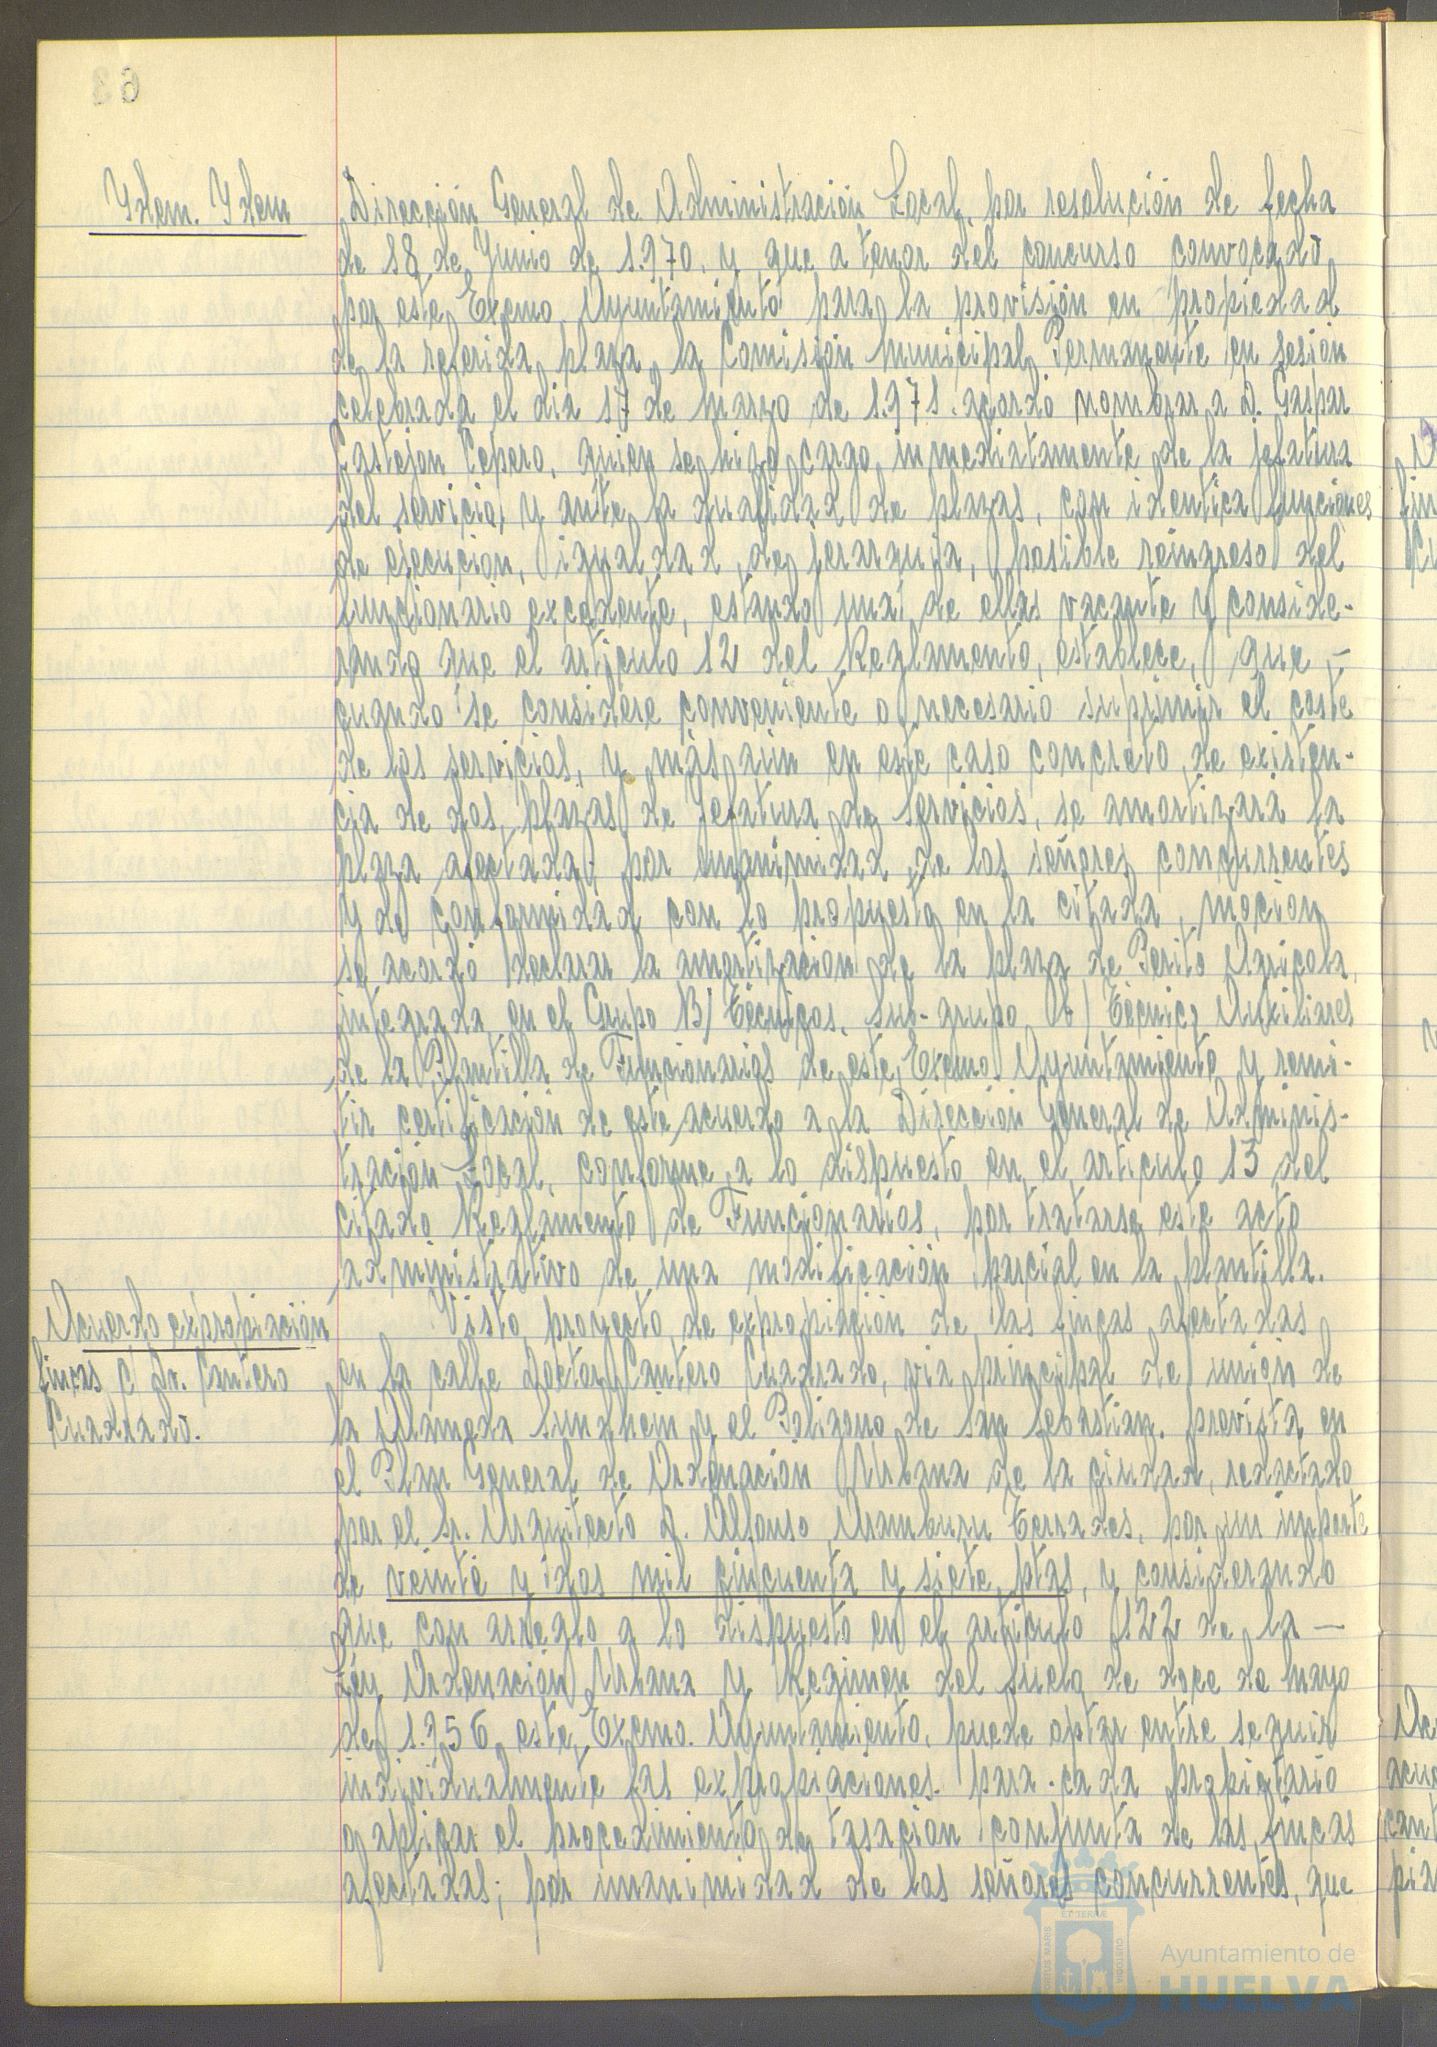 Ydem. Ydem
Dirección General de Administración Local, por resolución de fecha
de 18 de Junio de 1.970. y que a tenor del concurso convocado
por este Excmo. Ayuntamiento para la provisión en propiedad
de la referida plaza, la Comisión Municipal Permanente en sesión
celebrada el dia 17 de marzo de 1.971. acordó nombrar a D. Gaspar
Castejon Cepero, quien se hizo cargo inmediatamente de la jefatura
del servicio, y ante la dualidad de plazas, con identica funciones
de ejecución, igualdad de jerarquia, posible reingreso del
funcionario excedente, estando una de ellas vacante y conside-
rando que el articulo 12 del Reglamento, establece, que -
cuando se considere conveniente o necesario suprimir el coste
de los servicios, y más aún en este caso concreto de existen-
cia de dos plazas de Jefatura de Servicios, se amortizará la
plaza afectada; por unanimidad de los señores concurrentes
y de conformidad con lo propuesto en la citada moción
se acordó declarar la amortización de la plaza de Perito Agricola,
integrada en el Grupo B/ Técnicos, Sub-grupo b/ Técnico Auxiliares
de la Plantilla de Funcionarios de este Excmo. Ayuntamiento y remi-
tir certificación de este acuerdo a la Dirección General de Adminis-
tración Local, conforme a lo dispuesto en el articulo 13 del
citado Reglamento de Funcionarios, por tratarse este acto
administrativo de una modificación parcial en la plantilla.
Acuerdo expropiación
fincas C/ Dr. Cantero
Cuadrado.
Visto proyecto de expropiación de las fincas afectadas
en la calle Doctor Cantero Cuadrado, via principal de unión de
la Alameda Sundheim y el Poligono de San Sebastian. prevista en
el Plan General de Ordenación Urbana de la ciudad, redactado
por el Sr. Arquitecto D. Alfonso Aramburu Terrades, por un importe
de veinte y dos mil cincuenta y siete ptas, y considerando
que con arreglo a lo dispuesto en el articulo 122 de la -
Ley Ordenación Urbana y Regimen del Suelo de doce de mayo
de 1.956, este Excmo. Ayuntamiento, puede optar entre seguir
individualmente las expropiaciones. para cada propietario
o aplicar el procedimiento de tasación conjunta de las fincas
afectadas; por unanimidad de los señores concurrentes, que
Ayuntamiento de
HUELVA